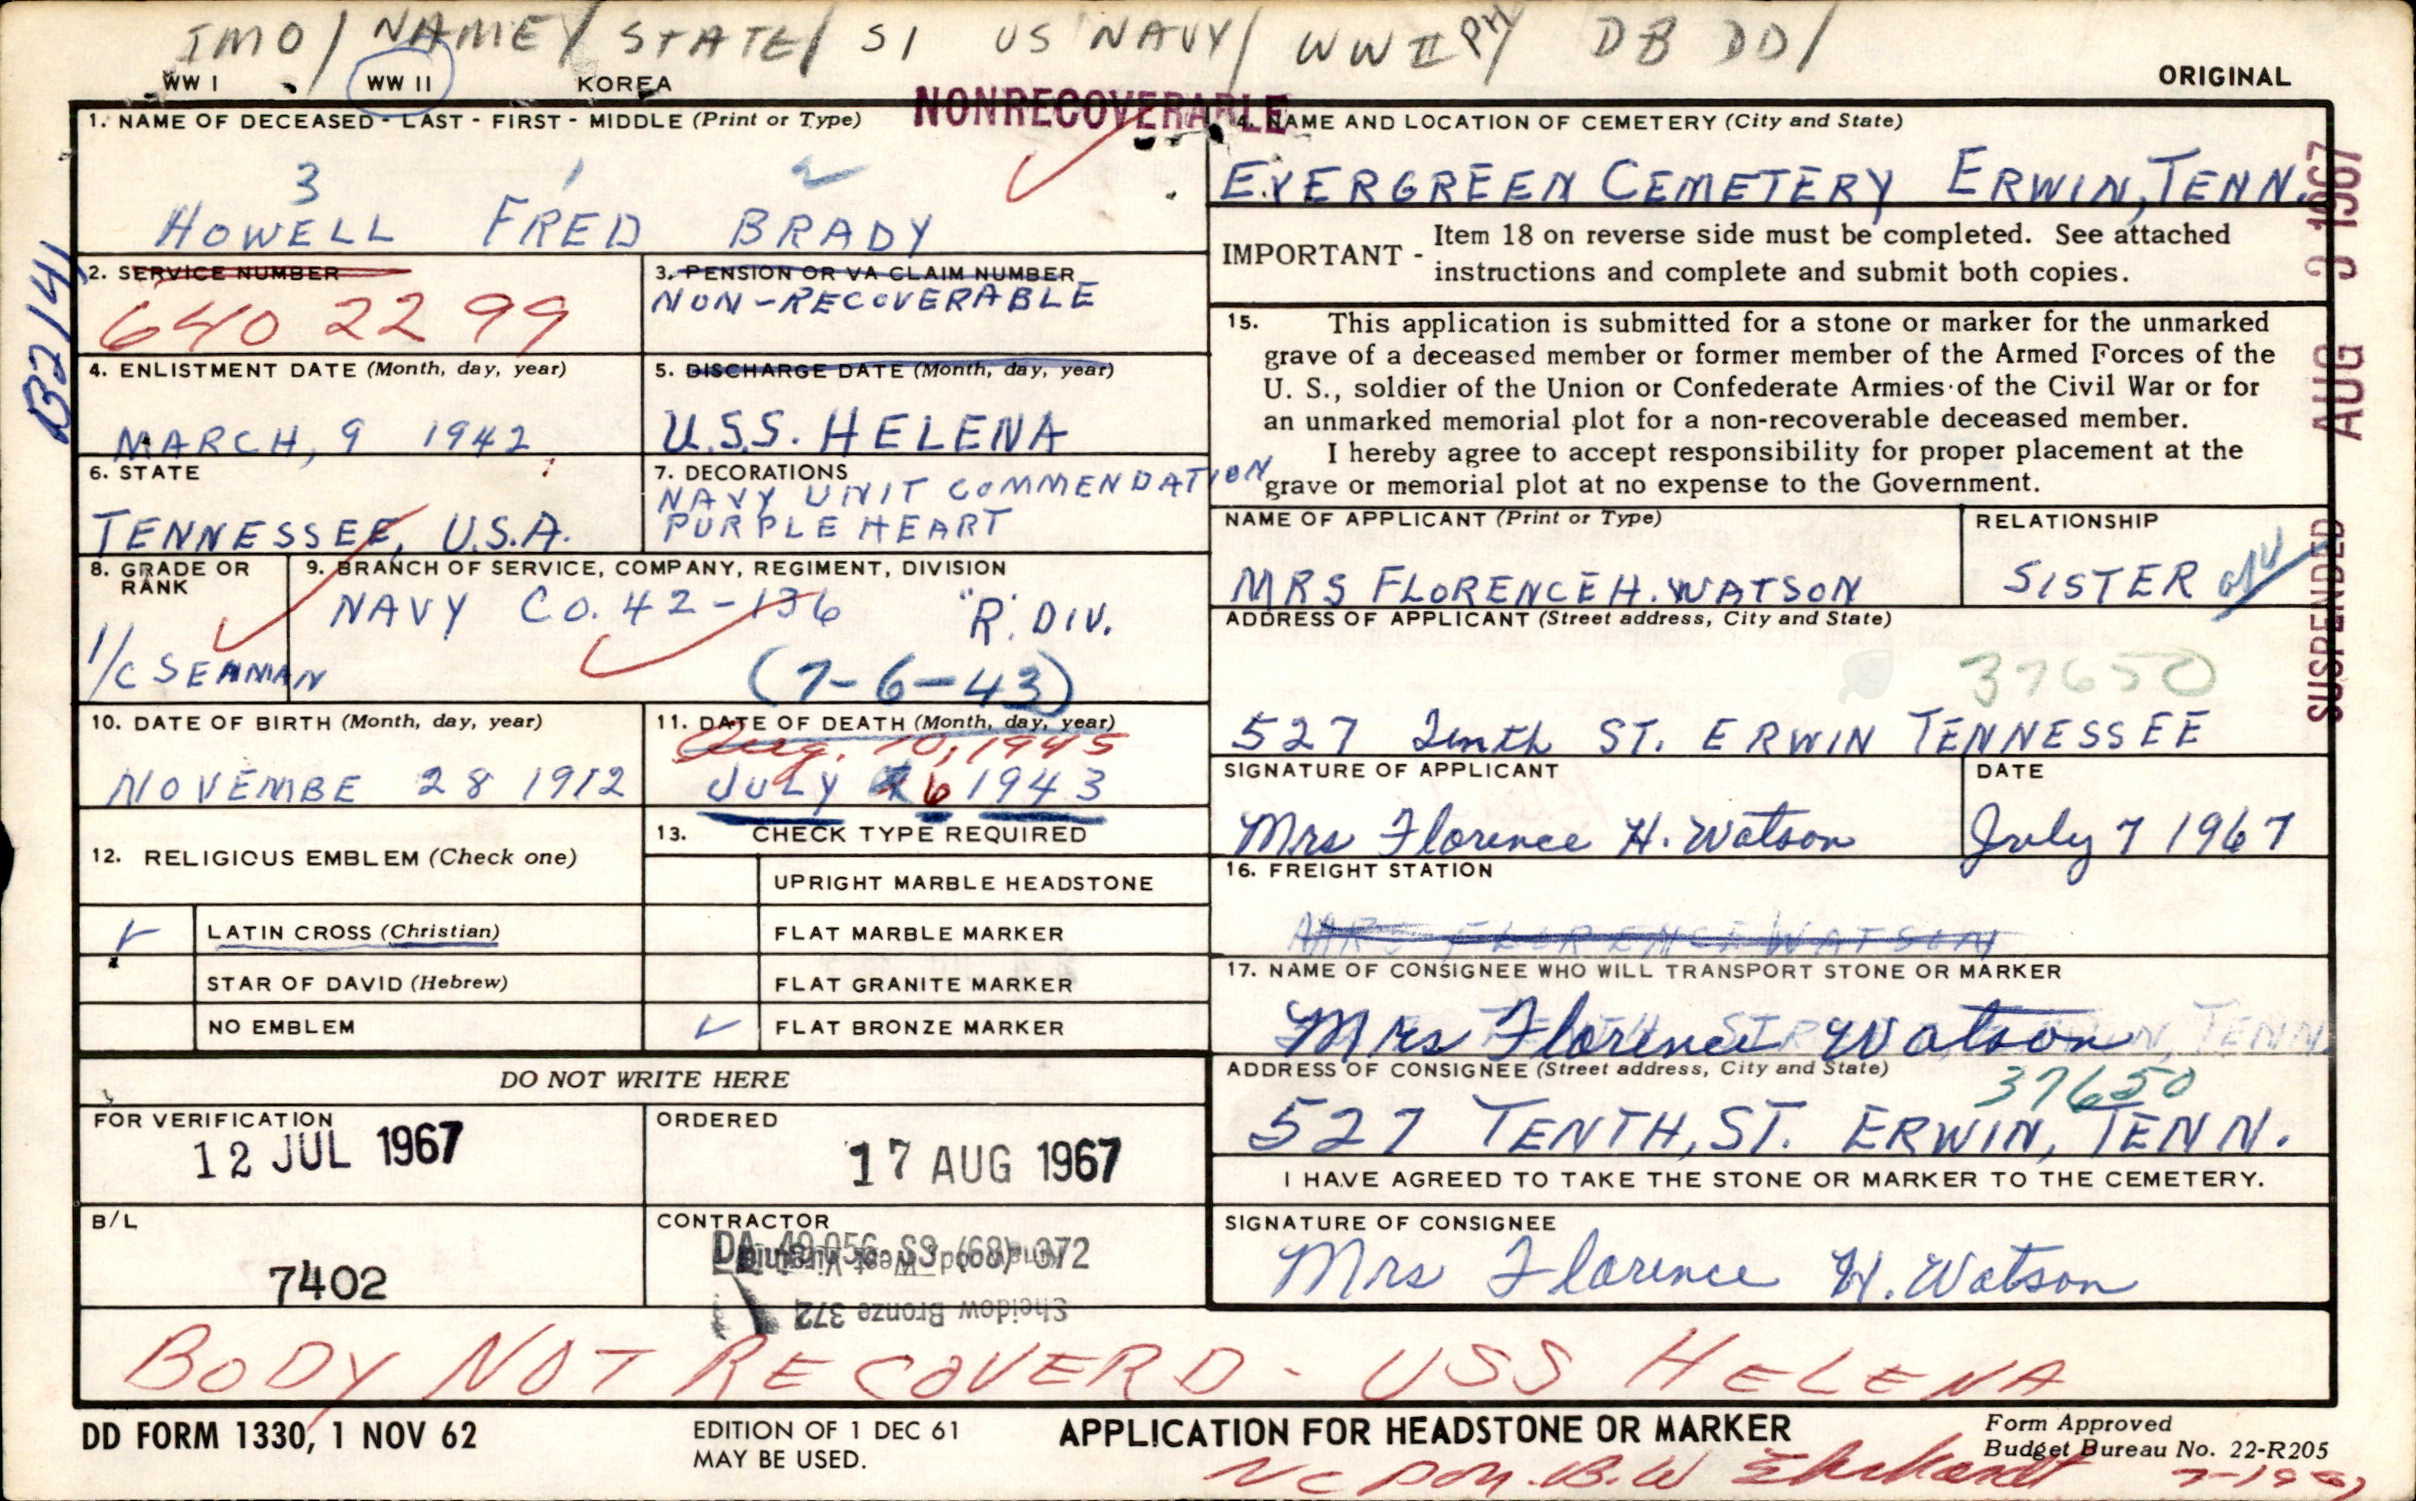 IMO / NAME / STATE / S1 US NAVY / WW II PH / DB DD /
WW I WW II KOREA
ORIGINAL
NONRECOVERABLE
1. NAME OF DECEASED - LAST - FIRST - MIDDLE (Print or Type)
3 1 2
HOWELL FRED BRADY
2. SERVICE NUMBER
640 22 99
3. PENSION OR VA CLAIM NUMBER
NON-RECOVERABLE
4. ENLISTMENT DATE (Month, day, year)
MARCH, 9 1942
5. DISCHARGE DATE (Month, day, year)
U.S.S. HELENA
6. STATE
TENNESSEE, U.S.A.
7. DECORATIONS
NAVY UNIT COMMENDATION
PURPLE HEART
8. GRADE OR
RANK
1/C SEAMAN
9. BRANCH OF SERVICE, COMPANY, REGIMENT, DIVISION
NAVY CO. 42-136 "R". DIV.
(7-6-43)
10. DATE OF BIRTH (Month, day, year)
NOVEMBE 28 1912
11. DATE OF DEATH (Month, day, year)
Aug. 10, 1945
JULY 6 1943
12. RELIGIOUS EMBLEM (Check one)
LATIN CROSS (Christian)
STAR OF DAVID (Hebrew)
NO EMBLEM
13. CHECK TYPE REQUIRED
UPRIGHT MARBLE HEADSTONE
FLAT MARBLE MARKER
FLAT GRANITE MARKER
FLAT BRONZE MARKER
DO NOT WRITE HERE
FOR VERIFICATION
12 JUL 1967
ORDERED
17 AUG 1967
B/L
7402
CONTRACTOR
DA 49 056 SS (68) 372
Sheidow Bronze 372
Kingwood, West Virginia
14. NAME AND LOCATION OF CEMETERY (City and State)
EVERGREEN CEMETERY ERWIN, TENN.
IMPORTANT - Item 18 on reverse side must be completed. See attached
instructions and complete and submit both copies.
15. This application is submitted for a stone or marker for the unmarked
grave of a deceased member or former member of the Armed Forces of the
U. S., soldier of the Union or Confederate Armies of the Civil War or for
an unmarked memorial plot for a non-recoverable deceased member.
I hereby agree to accept responsibility for proper placement at the
grave or memorial plot at no expense to the Government.
NAME OF APPLICANT (Print or Type)
MRS FLORENCE H. WATSON
RELATIONSHIP
SISTER
ADDRESS OF APPLICANT (Street address, City and State)
37650
527 Tenth ST. ERWIN TENNESSEE
SIGNATURE OF APPLICANT
Mrs Florence H. Watson
DATE
July 7 1967
16. FREIGHT STATION
MRS FLORENCE WATSON
17. NAME OF CONSIGNEE WHO WILL TRANSPORT STONE OR MARKER
Mrs Florence Watson
ADDRESS OF CONSIGNEE (Street address, City and State)
37650
527 TENTH, ST. ERWIN, TENN.
I HAVE AGREED TO TAKE THE STONE OR MARKER TO THE CEMETERY.
SIGNATURE OF CONSIGNEE
Mrs Florence H. Watson
BODY NOT RECOVERD - USS HELENA
DD FORM 1330, 1 NOV 62
EDITION OF 1 DEC 61
MAY BE USED.
APPLICATION FOR HEADSTONE OR MARKER
Form Approved
Budget Bureau No. 22-R205
B2141
SUSPENDED AUG 3 1967